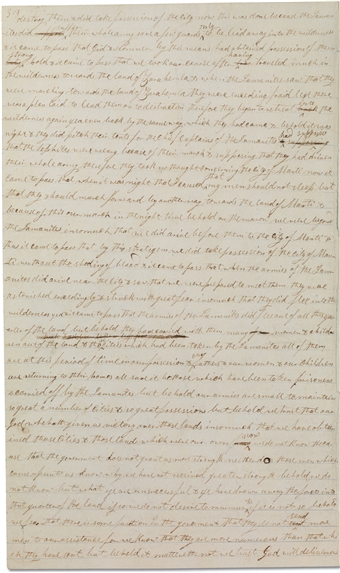 destroy them and did take possession of the City now this was done because the Lamanites
did their whole army save a few guards only to be lead away into the wilderness
& it came to pass that Gid & Teomner by this means had obtained possession of their
strong holds & it came to pass that we took our course after having traveled much in
the wilderness towards the land of Zarahemla & when the Lamanites saw that they
were marching towards the land of Zarahemla they were exceding fraid lest there
was a plan laid to lead them on to destruction therefore they began to retreat into the
wilderness again yea even back by the same way which they had came & behold it was
night & they did pitch their tents for the chief Captains of the Lamanites had supposed
that the Nephites were weary because of their march & supposing that they had driven
their whole army therefore they took no thought concerning the City of Manti now it
came to pass that when it was night that I caused my men should not sleep but
that they should march forward by another way towards the land of Manti &
because of this our march in the night time behold on the morrow we were beyond
the Lamanites insomuch that we did arive before them to the City of Manti &
thus it came to pass that by this stratagem we did take possession of the City of Man
ti without the sheding of blood & it came to pass that when the armies of the Lam
anites did arive near the City & saw that we were prepared to meet them they were
astonished exceedingly & struck with great fear insomuch that they did flee into the
wilderness yea & it came to pass that the armies of the Lamanites did flee out of all this quarter
of the land but behold they have carried with them many women & children
out of the land & those Cities which had been taken by the Lamanites all of them
are at this period of time in our possession & our fathers & our women & our Children
are returning to their homes all save it be those which have been taken prisoners &
carried off by the Lamanites but behold our armies are small to maintain
so great a number of Cities & so great possessions but behold we trust that our
God who hath given us victory over those lands insomuch that we have obtained
those Cities & those lands which were our own now we do not know the cause
that the government does not grant us more strength neither do those men which
came up unto us know why we have not received greater strength behold we do
not know but what ye are unsuccessful & ye have drawn away the forces into
that quarter of the land if so we do not desire to murmur & if it is not so behold
we fear that there is some faction in the government that they do not send more
men to our assistance for we know that they are more numerous than that which
they have sent but behold it mattereth not we trust God will deliver us